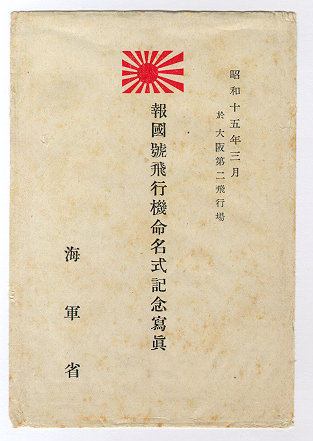 昭和十五年三月
於大阪第二飛行場
報國號飛行機命名式記念寫眞
海軍省